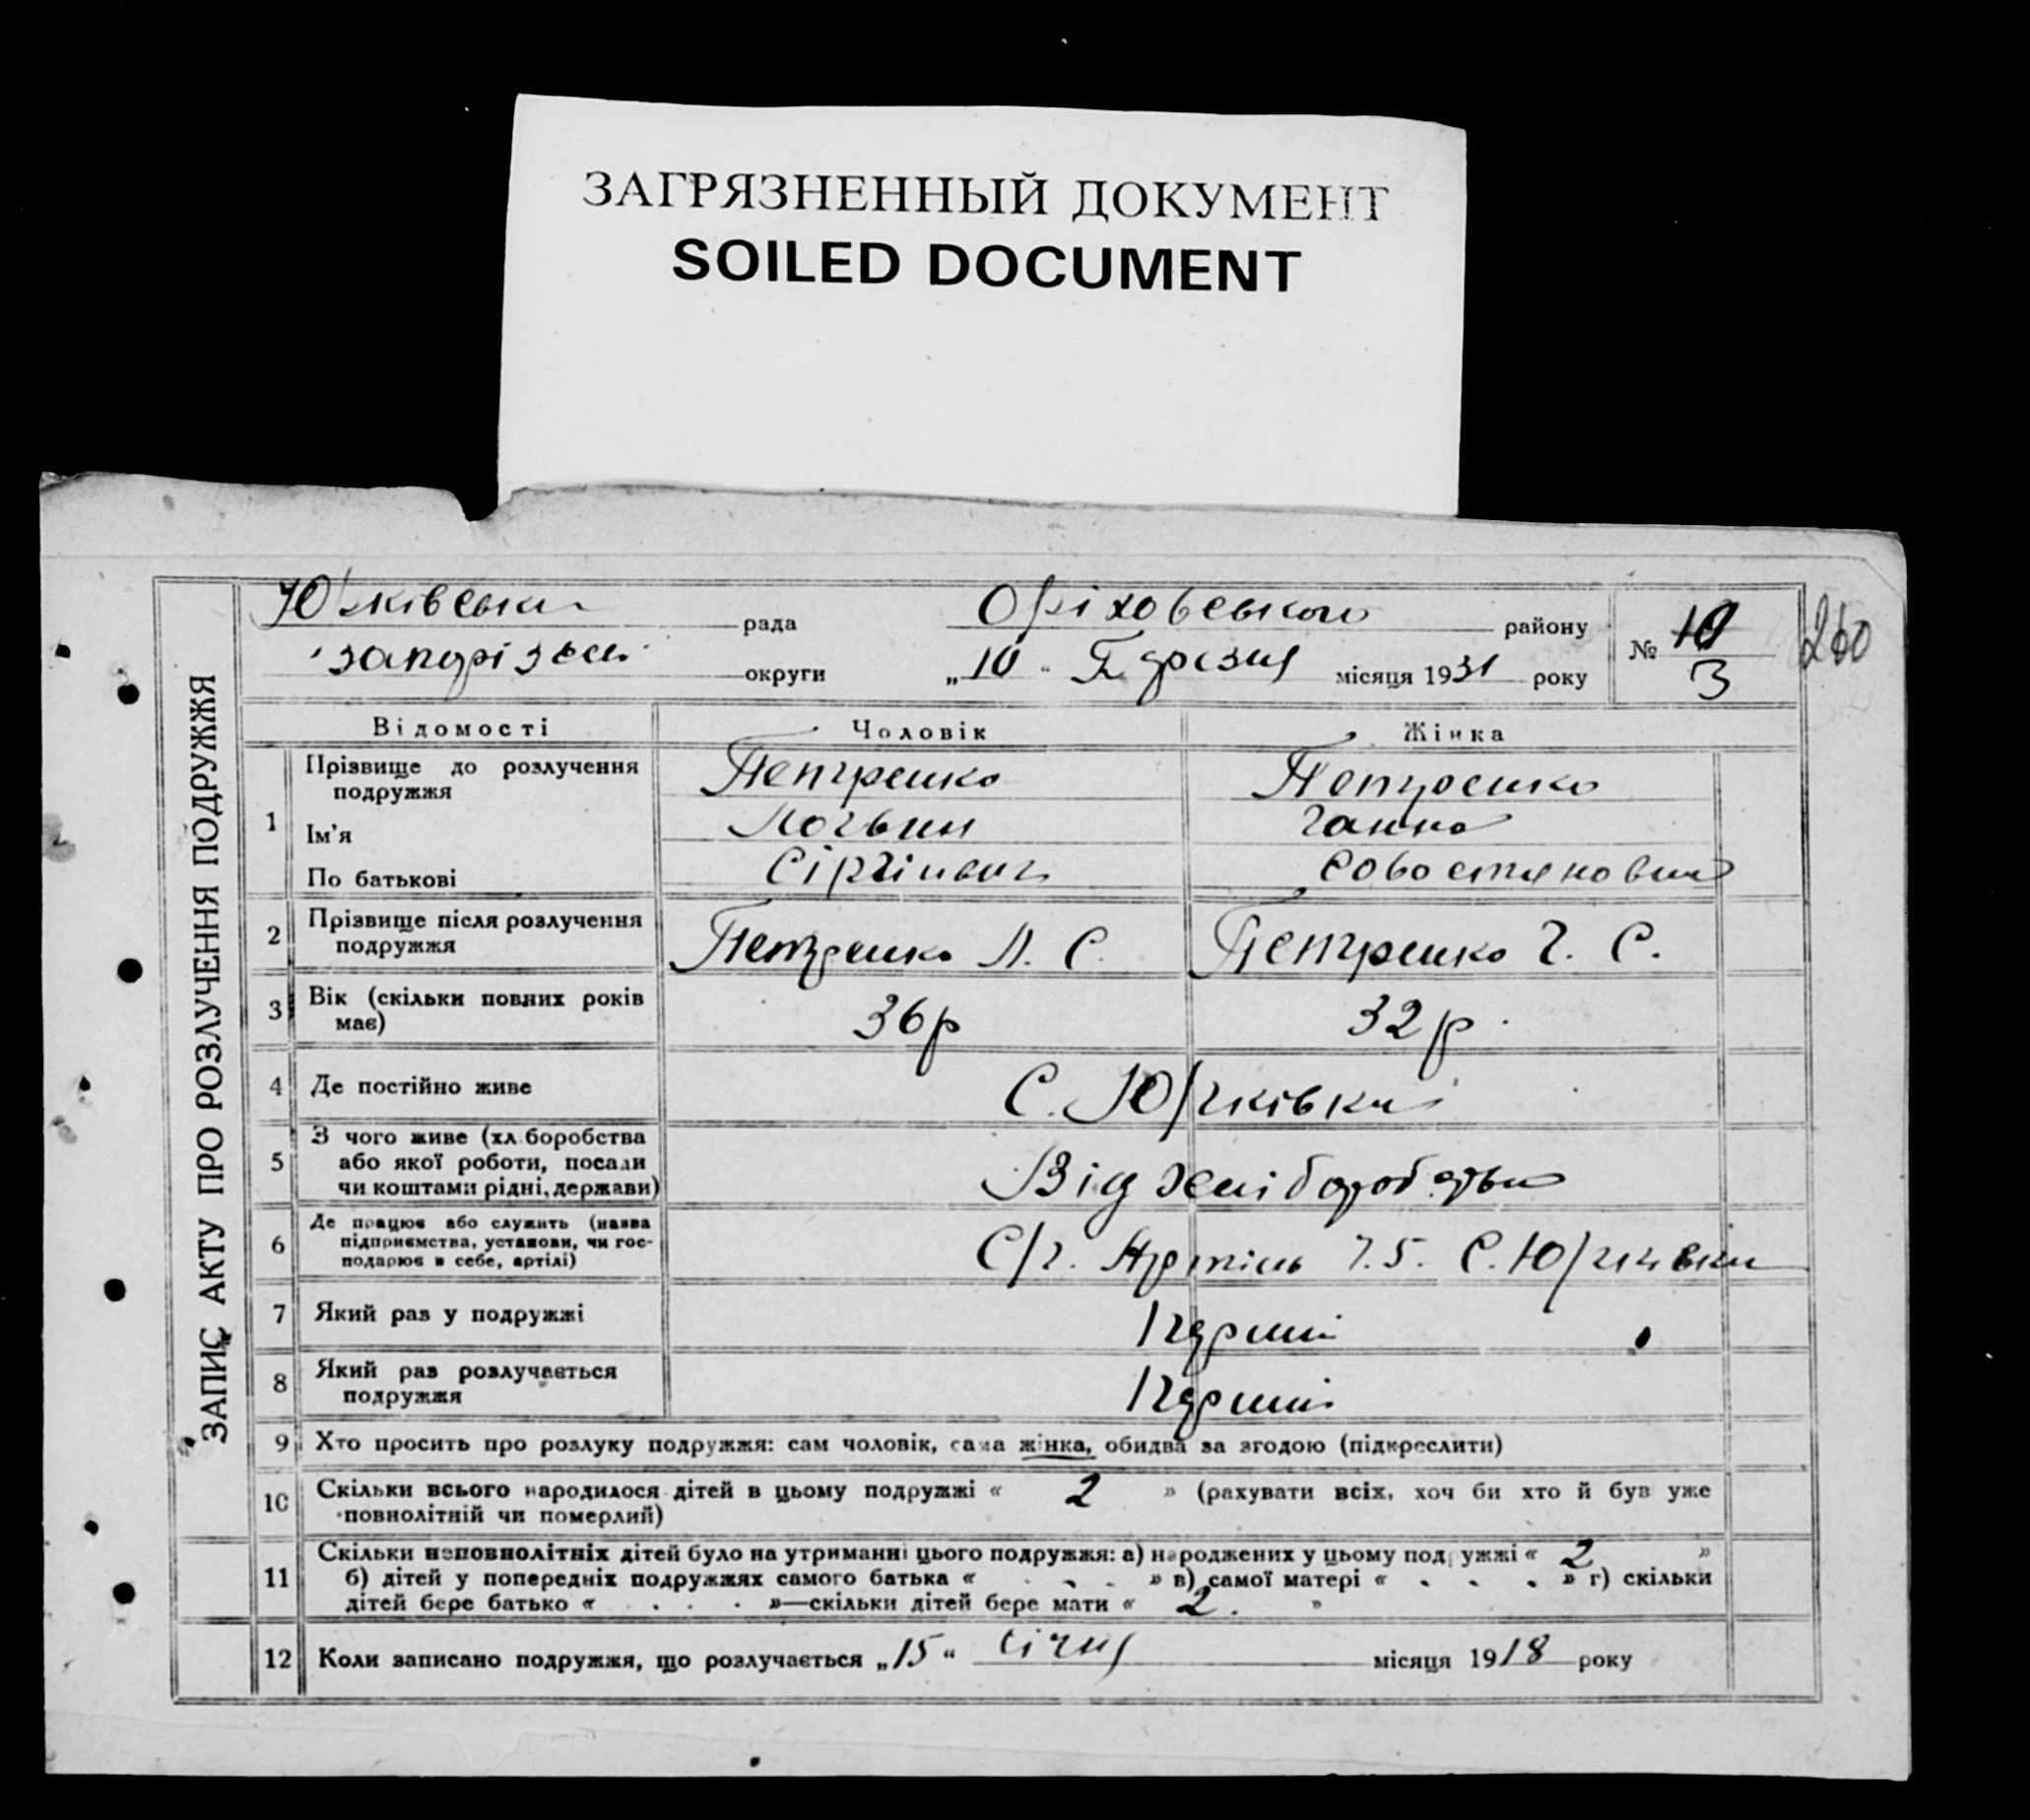 ЗАГРЯЗНЕННЫЙ ДОКУМЕНТ
SOILED DOCUMENT
ЗАПИС АКТУ ПРО РОЗЛУЧЕННЯ ПОДРУЖЖЯ
рада Оріховського району № 10 260
округи „10" Березня місяця 1931 року 3
Відомості Чоловік Жінка
1 Прізвище до розлучення подружжя Петренко Петренко
Ім'я Логвин Ганна
По батькові
2 Прізвище після розлучення подружжя Петренко Л. С. Петренко Г. С.
3 Вік (скільки повних років має) 36р 32р.
4 Де постійно живе С. Юрчківка
5 З чого живе (хл.боробства або якої роботи, посади чи коштами рідні, держави) Від
6 Де працює або служить (назва підприємства, установи, чи господарює в себе, артілі) С/г. Артіль С.
7 Який раз у подружжі
8 Який раз розлучається подружжя
9 Хто просить про розлуку подружжя: сам чоловік, сама жінка, обидва за згодою (підкреслити)
10 Скільки всього народилося дітей в цьому подружжі « 2 » (рахувати всіх, хоч би хто й був уже
повнолітній чи померлий)
11 Скільки неповнолітніх дітей було на утриманні цього подружжя: а) народжених у цьому подружжі « 2 »
б) дітей у попередніх подружжях самого батька « . . . » в) самої матері « . . . » г) скільки
дітей бере батько « . . . »—скільки дітей бере мати « 2. »
12 Коли записано подружжя, що розлучається „15" січня місяця 1918 року